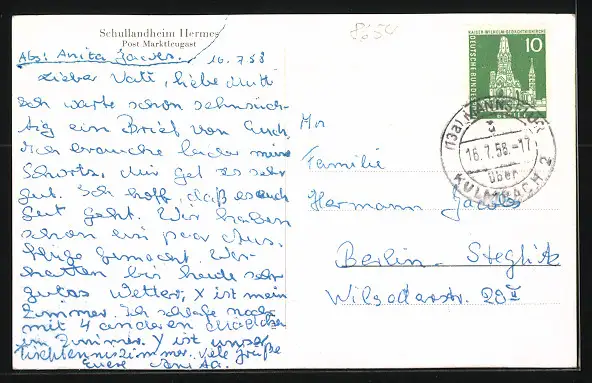 Schullandheim Hermes
Post Marktleugast
Abs: Anita Jacobs. 10.7.58
Lieber Vati, liebe Mutti
Ich warte schon sehnsüch-
tig ein Brief von Euch,
Ich brauche leider meine
Schorts, mir get es sehr
gut. Ich hoff, daß es euch
gut geht. Wir haben
schon ein paar Aus-
flüge gemacht. Wir
hatten bis heute sehr
gutes Wetter, X ist mein
Zimmer. Ich schlafe noch
mit 4 anderen Mädchen
im Zimmer. Y ist unser
Tischtenniszimmer. Viele Grüße
Eure Anita.
8650
KAISER-WILHELM-GEDÄCHTNISKIRCHE
DEUTSCHE BUNDESPOST
10
BERLIN
(13a)
16.7.58.-17
über
KULMBACH 2
An
Familie
Hermann Jacobs
Berlin-Steglitz
29 II